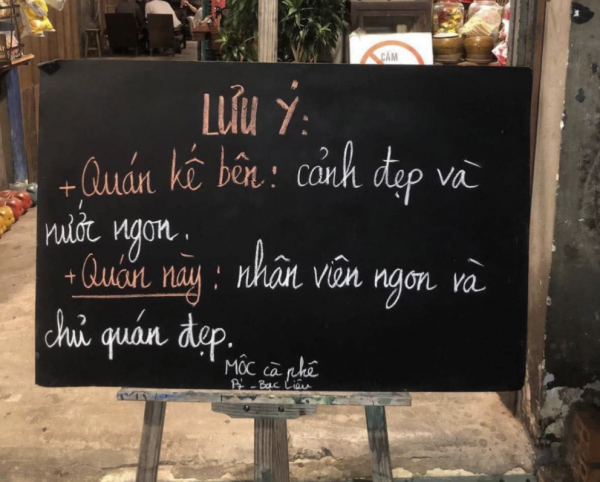 CẤM
LƯU Ý:
+ Quán kế bên: cảnh đẹp và
nước ngon.
+ Quán này: nhân viên ngon và
chủ quán đẹp.
MÔC cà phê
Bạc Liêu